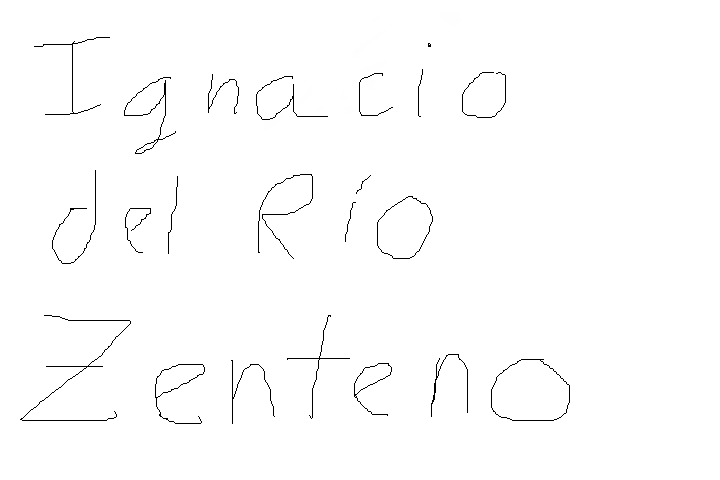 Ignacio
del Río
Zenteno